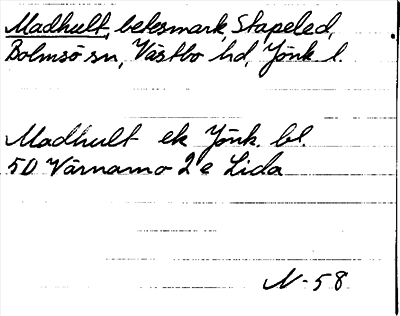 Madhult, betesmark, Stapeled,
Bolmsö sn, Västbo hd, Jönk l.
Madhult ek Jönk. bl.
5D Värnamo 2 e Lida
N-58